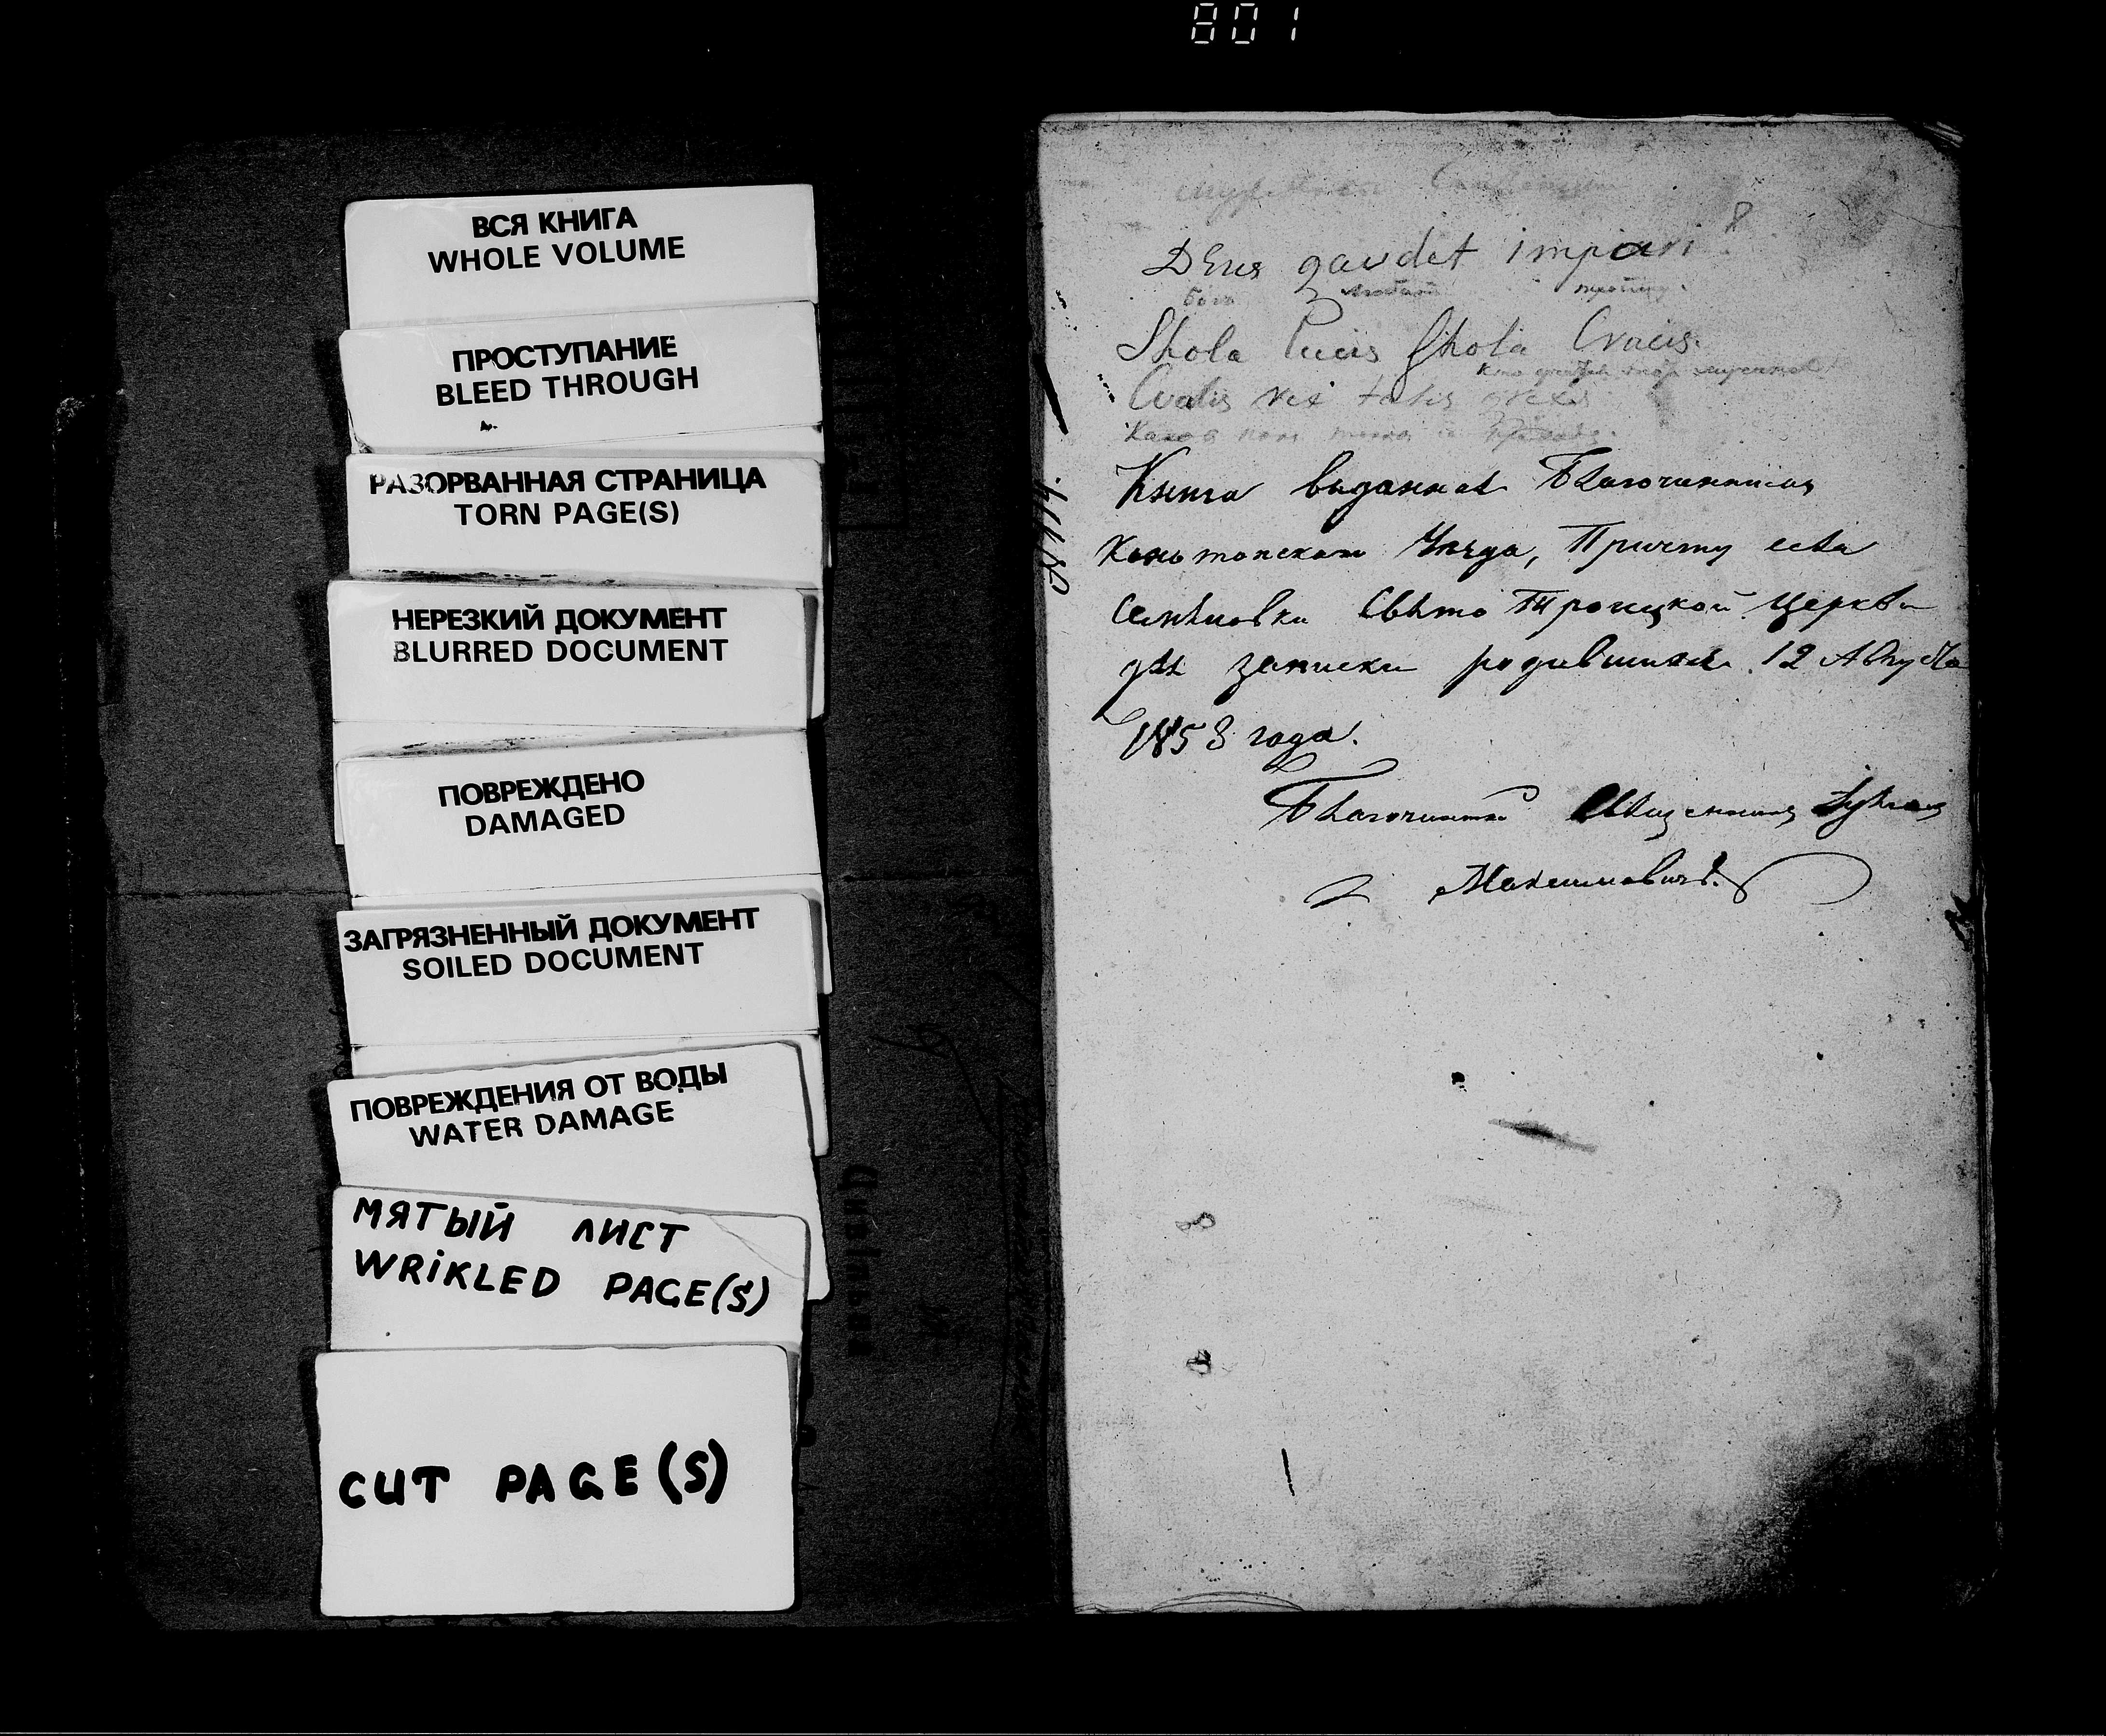 801
ВСЯ КНИГА
WHOLE VOLUME
ПРОСТУПАНИЕ
BLEED THROUGH
РАЗОРВАННАЯ СТРАНИЦА
TORN PAGE(S)
НЕРЕЗКИЙ ДОКУМЕНТ
BLURRED DOCUMENT
ПОВРЕЖДЕНО
DAMAGED
ЗАГРЯЗНЕННЫЙ ДОКУМЕНТ
SOILED DOCUMENT
ПОВРЕЖДЕНИЯ ОТ ВОДЫ
WATER DAMAGE
МЯТЫЙ ЛИСТ
WRiKLED PAGE(S)
CUT PAGE(S)
Deus gaudet impari
Богъ любитъ
Shola Lucis Shola Crucis.
Cvalis rex talis grex
Каковъ
Книга выданная Благочиннымъ
Конотопскаго Уезда, Причту села
Семеновки Свято Троицкой Церкви
для записки родившихся 12 Августа
1853 года.
Благочинный Священник
Максимовичъ.